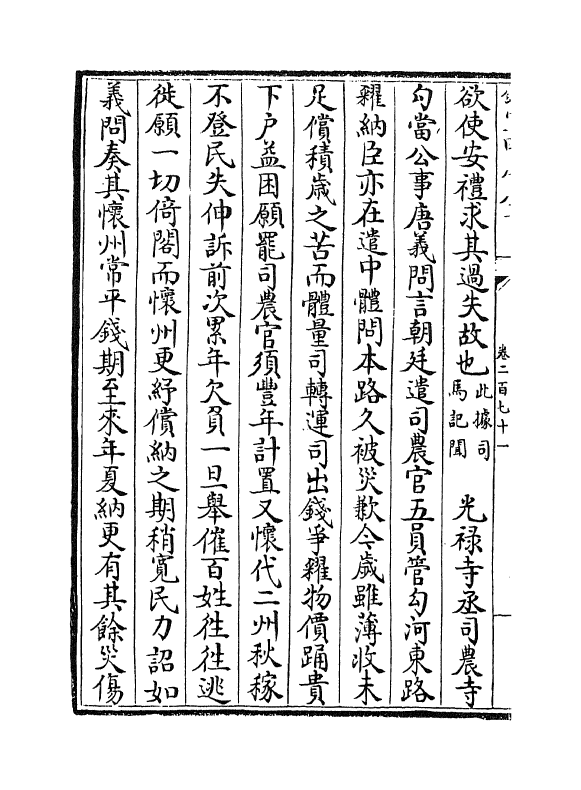 卷二百七十一
欲使安禮求其過失故也此據司馬記聞　光禄寺丞司農寺
勾當公事唐義問言朝廷遣司農官五員管勾河東路
糴納臣亦在遣中體問本路久被災歉今歲雖薄收未
足償積歲之苦而體量司轉運司出錢爭糴物價踊貴
下户益困願罷司農官須豐年計置又懷代二州秋稼
不登民失伸訴前次累年欠負一旦舉催百姓徃徃逃
徙願一切倚閣而懷州更紓償納之期稍寛民力詔如
義問奏其懷州常平錢期至來年夏納更有其餘災傷